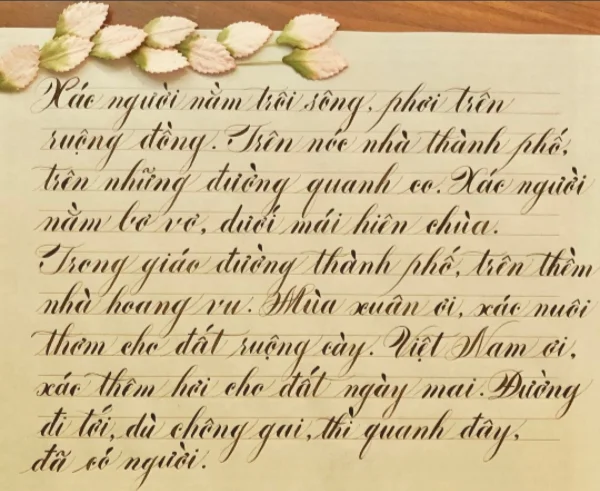 Xác người nằm trôi sông, phơi trên
ruộng đồng. Trên nóc nhà thành phố,
trên những đường quanh co. Xác người
nằm bơ vơ, dưới mái hiên chùa.
Trong giáo đường thành phố, trên thềm
nhà hoang vu. Mùa xuân ơi, xác nuôi
thơm cho đất ruộng cày. Việt Nam ơi,
xác thêm hơi cho đất ngày mai. Đường
đi tới, dù chông gai, thì quanh đây,
đã có người.